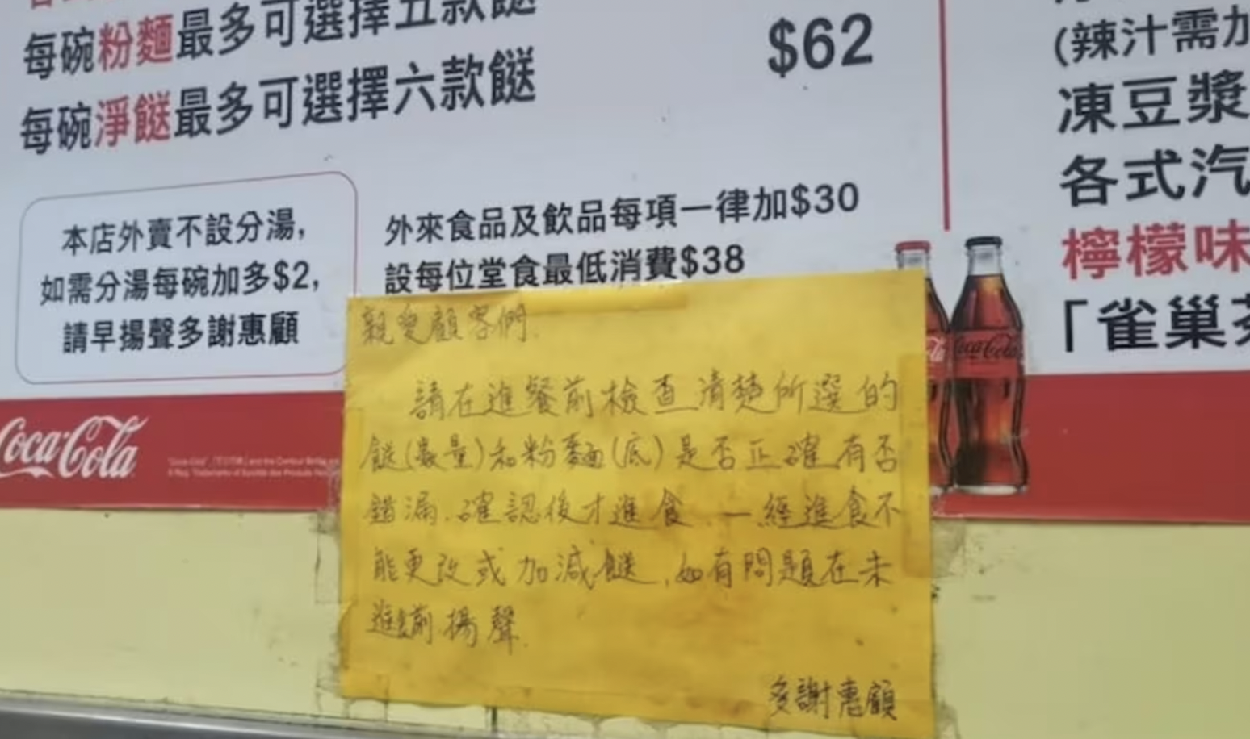 每碗粉麵最多可選擇五款餸
每碗淨餸最多可選擇六款餸
$62
本店外賣不設分湯,
如需分湯每碗加多$2,
請早揚聲多謝惠顧
外來食品及飲品每項一律加$30
設每位堂食最低消費$38
(辣汁需加
凍豆漿
各式汽
檸檬味
「雀巢茶
Coca-Cola
Coca-Cola
親愛顧客們.
請在進餐前檢查清楚所選的
餸(數量)和粉麵(底)是否正確有否
錯漏.確認後才進食.一經進食不
能更改或加減餸,如有問題在未
進餐前揚聲.
多謝惠顧